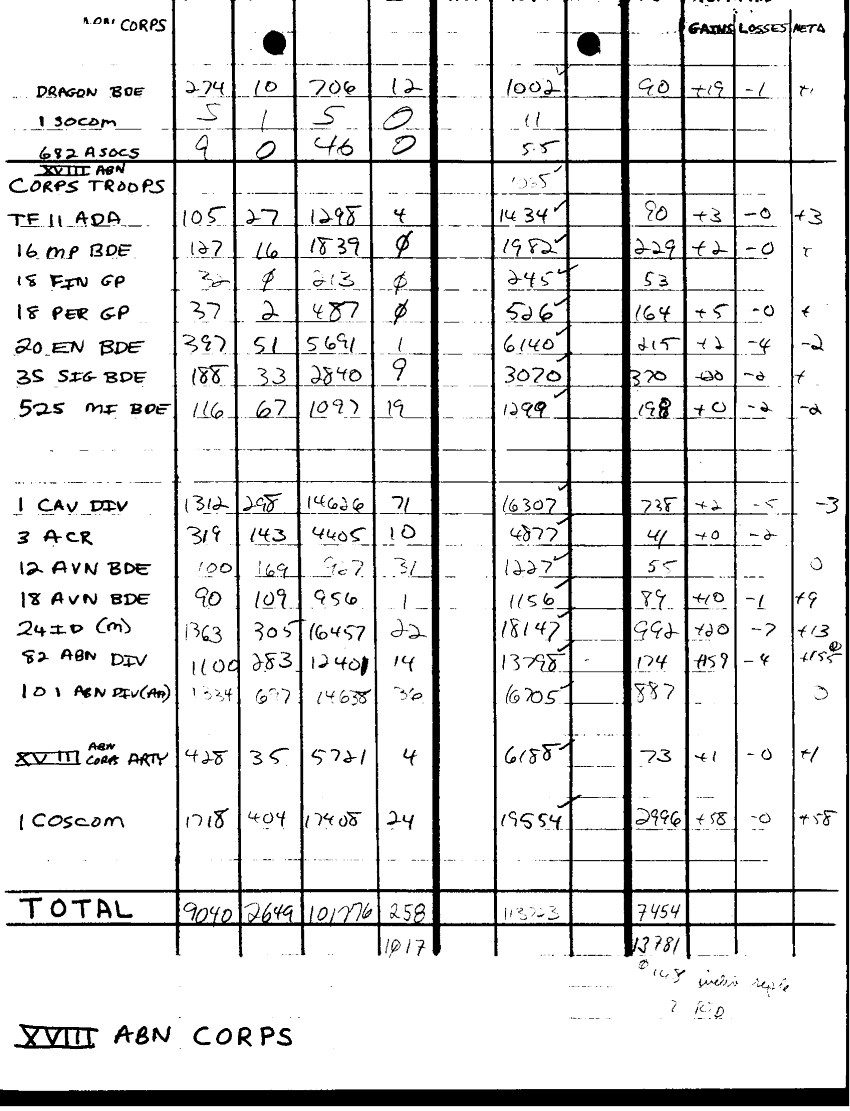 CORPS GAINS LOSSES NET Δ
DRAGON BDE 274 10 706 12 1002✓ 90 +19 -1
1 SOCOM 5 1 5 0 11
682 ASOCS 9 0 46 0 55
XVIII ABN
CORPS TROOPS
TF 11 ADA 105 27 1298 4 1434✓ 90 +3 -0 +3
16 MP BDE 127 16 1839 ∅ 1982✓ 229 +2 -0
18 FIN GP 32 ∅ 213 ∅ 245✓ 53
18 PER GP 37 2 487 ∅ 526✓ 164 +5 -0 +
20 EN BDE 397 51 5691 1 6140✓ 215 +2 -4 -2
35 SIG BDE 188 33 2840 9 3070✓ 370 +20 -2 +
525 MI BDE 116 67 1097 19 1299✓ 198 +0 -2 -2
1 CAV DIV 1312 298 14626 71 16307✓ 738 +2 -5 -3
3 ACR 319 143 4405 10 4877✓ 41 +0 -2
12 AVN BDE 100 169 927 31 1227✓ 55 0
18 AVN BDE 90 109 956 1 1156✓ 89 +10 -1 +9
24 ID (M) 1363 305 16457 22 18147✓ 992 +20 -7 +13
82 ABN DIV 1100 283 12401 14 13798✓ 174 +159 -4 +155
101 ABN DIV(AA) 1334 697 14638 36 16705✓ 887 0
XVIII ABN CORPS ARTY 428 35 5721 4 6188✓ 73 +1 -0 +1
1 COSCOM 1718 404 17408 24 19554✓ 2996 +58 -0 +58
TOTAL 9040 2649 101776 258 113723 7454
1017 13781
XVIII ABN CORPS